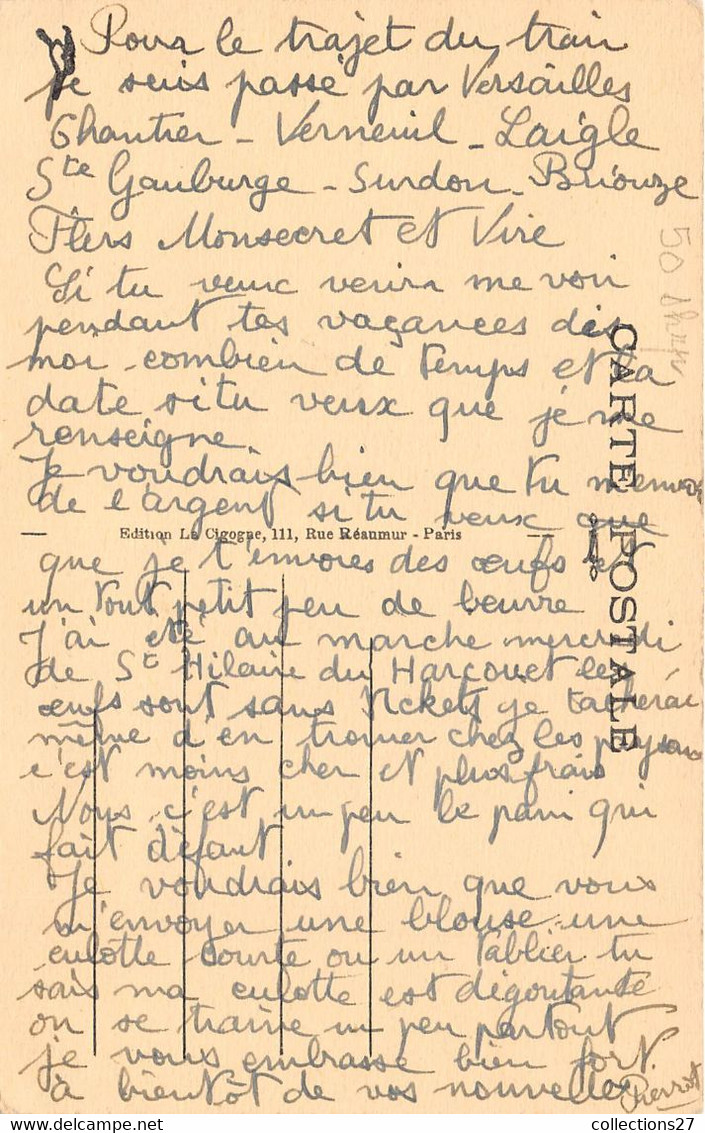 Pour le trajet du train
je suis passé par Versailles
Chantier - Verneuil - Laigle
Ste Gauburge - Surdon - Briouze
Flers Monsecret et Vire
Si tu veux venir me voir
pendant tes vacances dis
moi combien de temps et la
date si tu veux que je me
renseigne.
Je voudrais bien que tu m'envoi
de l'argent si tu veux que
Edition La Cigogne, 111, Rue Réaumur - Paris
que je t'envoies des œufs et
un tout petit peu de beurre
J'ai été au marche mercredi
de St Hilaire du Harcouet les
œufs sont sans tickets je tacherai
même d'en trouver chez les paysans
c'est moins cher et plus frais
Nous c'est un peu le pain qui
fait défaut
Je voudrais bien que vous
m'envoyer une blouse une
culotte courte ou un tablier tu
sais ma culotte est dégoutante
on se traine un peu partout
je vous embrasse bien fort.
à bientôt de vos nouvelles
Pierrot
CARTE POSTALE
50
collections27